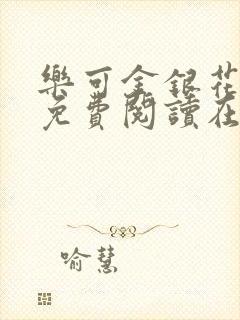 樂可金銀花
免費閱讀在
喻慧